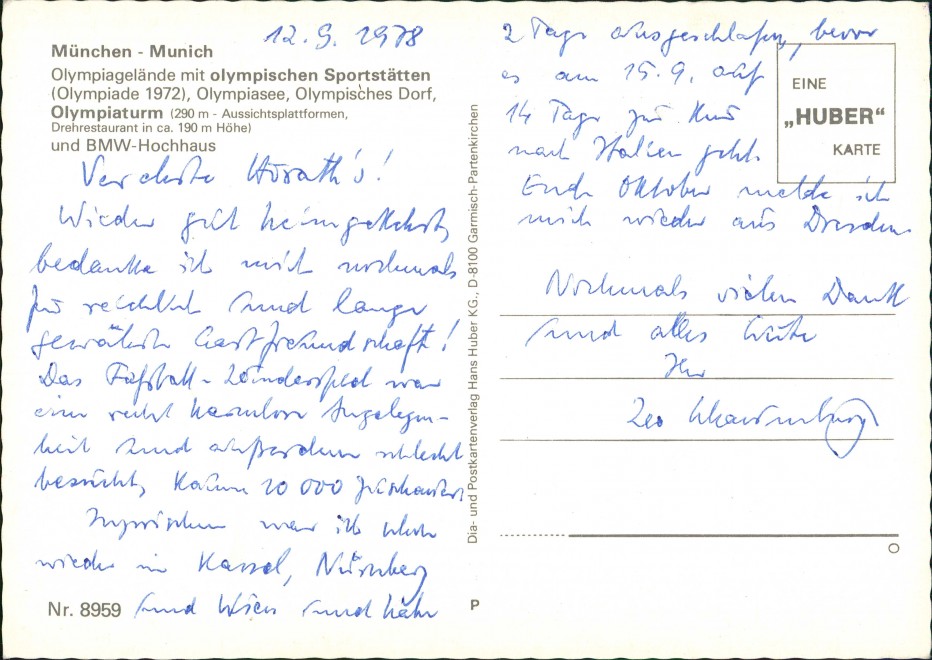 12.9.1978
München - Munich
Olympiagelände mit olympischen Sportstätten
(Olympiade 1972), Olympiasee, Olympisches Dorf,
Olympiaturm (290 m - Aussichtsplattformen,
Drehrestaurant in ca. 190 m Höhe)
und BMW-Hochhaus
Verehrte Horath's!
Wieder gut heimgekehrt,
bedanke ich mich nochmals
für reichlich und lange
gewährte Gastfreundschaft!
Das Fußball-Länderspiel war
eine recht harmlose Angelegen-
heit und außerdem schlecht
besucht, kaum 10 000 Zuschauer.
Inzwischen war ich schon
wieder in Kassel, Nürnberg
Nr. 8959 und Wien und habe
Dia- und Postkartenverlag Hans Huber KG., D-8100 Garmisch-Partenkirchen
P
2 Tage ausgeschlafen, bevor
es am 15.9. auf
14 Tage zur Kur
nach Italien geht.
Ende Oktober melde ich
mich wieder aus Dresden.
EINE
„HUBER"
KARTE
Nochmals vielen Dank
und alles Gute
Ihr
Leo